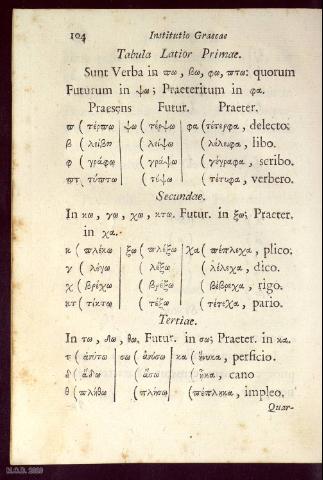 104 Institutio Graecae
Tabula Latior Primae.
Sunt Verba in πω, βω, φω, πτω: quorum
Futurum in ψω; Praeteritum in φα.
Praesens Futur. Praeter.
π ( τέρπω ψω ( τέρψω φα ( τέτερφα, delecto;
β ( λείβω ( λείψω ( λέλειφα, libo.
φ ( γράφω ( γράψω ( γέγραφα, scribo.
πτ ( τύπτω ( τύψω ( τέτυφα, verbero.
Secundae.
In κω, γω, χω, κτω. Futur. in ξω; Praeter.
in χα.
κ ( πλέκω ξω ( πλέξω χα ( πέπλεχα, plico;
γ ( λέγω ( λέξω ( λέλεχα, dico.
χ ( βρέχω ( βρέξω ( βέβρεχα, rigo.
κτ ( τίκτω ( τέξω ( τέτεχα, pario.
Tertiae.
In τω, δω, θω, Futur. in σω; Praeter. in κα.
τ ( ἀνύτω σω ( ἀνύσω κα ( ἤνυκα, perficio.
δ ( ἄδω ( ἄσω ( ἦκα, cano
θ ( πλήθω ( πλήσω ( πέπληκα, impleo.
Quar-